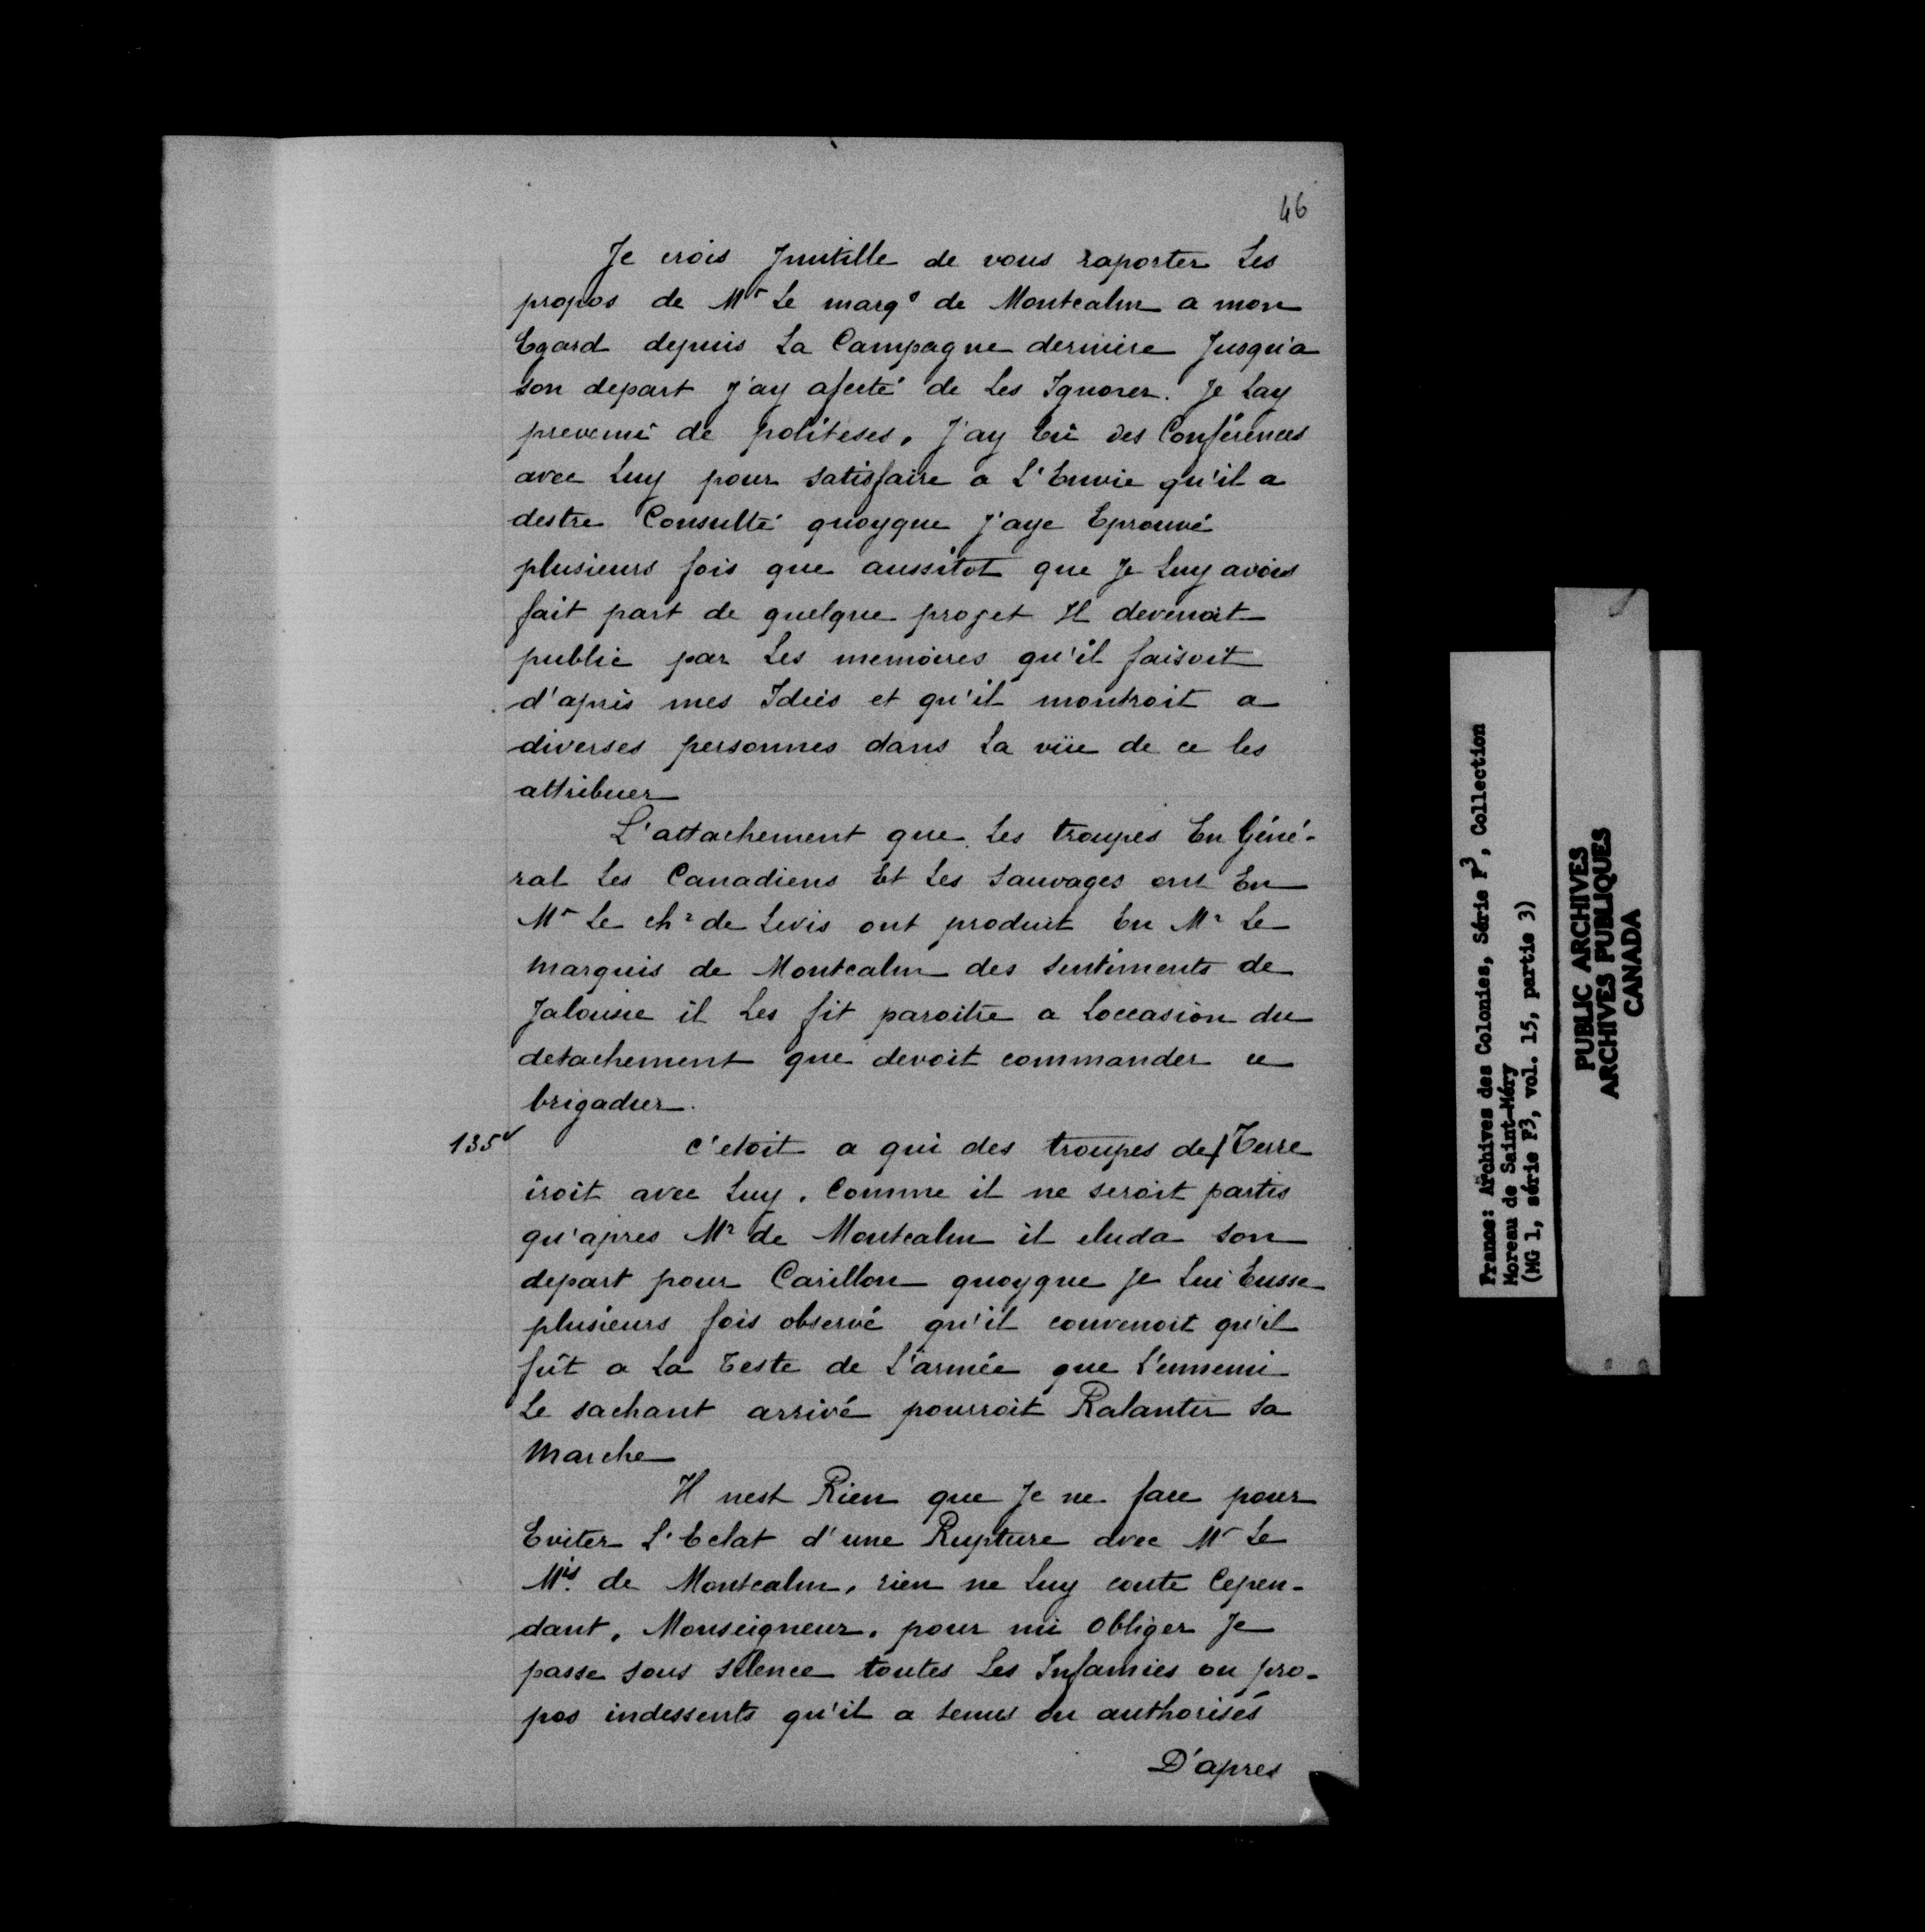 46
Je crois Jnutille de vous raporter Les
propos de Mr Le marqs de Montcalm a mon
Egard depuis La Campagne derniere Jusqu'a
son depart j'ay afecté de Les Ignorer. Je Lay
prevenu de politeses, J'ay Eû des Conférences
avec Luy pour satisfaire a L'Envie qu'il a
destre Consulté quoyque j'aye Eprouvé
plusieurs fois que aussitot que Je Luy avois
fait part de quelque projet Il devenoit
public par Les memoires qu'il faisoit
d'après mes Idées et qu'il montroit a
diverses personnes dans La vüe de ce les
attribuer
L'attachement que Les troupes En Géné-
ral Les Canadiens Et Les Sauvages ont En
Mr Le chr de Levis ont produit En Mr Le
Marquis de Montcalm des sentiments de
Jalousie il Les fit paroitre a Loccasion du
detachement que devoit commander ce
brigadier.
135v
c'etoit a qui des troupes de Terre
iroit avec Luy. Comme il ne seroit partis
qu'apres Mr de Montcalm il eluda son
depart pour Carillon quoyque Je Lui Eusse
plusieurs fois observé qu'il convenoit qu'il
fût a La Teste de L'armée que L'ennemi
Le sachant arrivé pourroit Ralantir Sa
Marche
Il nest Rien que Je ne face pour
Eviter L'Eclat d'une Rupture avec Mr Le
Mis. de Montcalm, rien ne Luy coute Cepen-
dant, Monseigneur, pour mi obliger Je
passe sous silence toutes Les Infamies ou pro-
pos indessents qu'il a tenus ou authorisés
D'apres
France: Archives des Colonies, Série F3, Collection
Moreau de Saint-Méry
(MG 1, série F3, vol. 15, partie 3)
PUBLIC ARCHIVES
ARCHIVES PUBLIQUES
CANADA